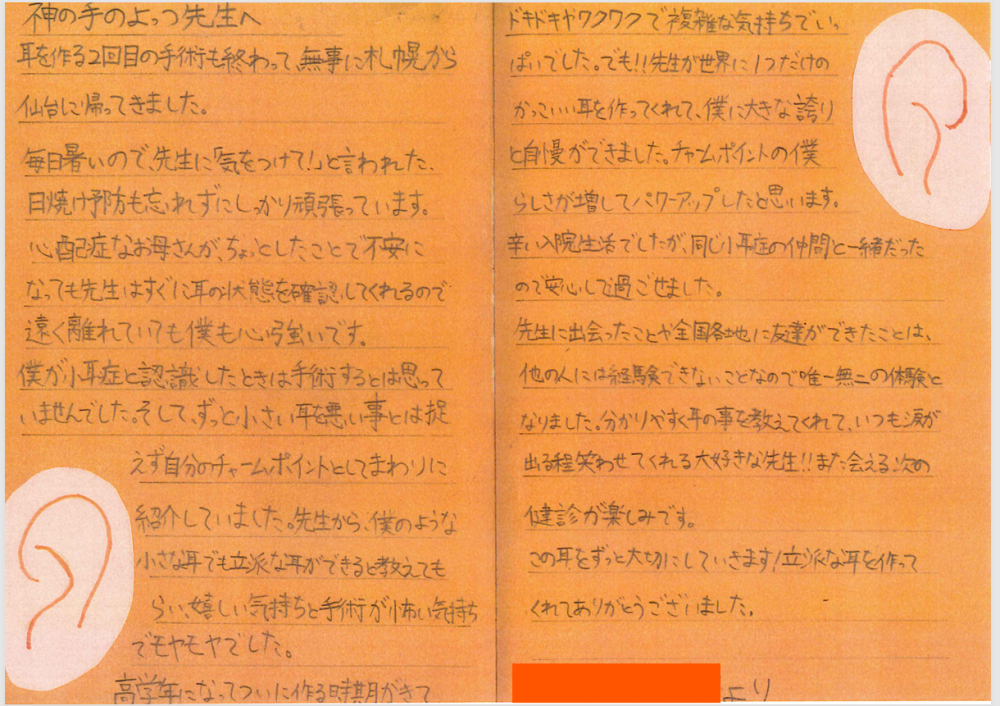 神の手のよっつ先生へ
耳を作る2回目の手術も終わって、無事に札幌から
仙台に帰ってきました。
毎日暑いので、先生に「気をつけて!」と言われた、
日焼け予防も忘れずにしっかり頑張っています。
心配症なお母さんが、ちょっとしたことで不安に
なっても先生はすぐに耳の状態を確認してくれるので
遠く離れていても僕も心強いです。
僕が小耳症と認識したときは手術するとは思って
いませんでした。そして、ずっと小さい耳を悪い事とは捉
えず自分のチャームポイントとしてまわりに
紹介していました。先生から、僕のような
小さな耳でも立派な耳ができると教えても
らい、嬉しい気持ちと手術が怖い気持ち
でモヤモヤでした。
高学年になってついに作る時期がきて
ドキドキやワクワクで複雑な気持ちでいっ
ぱいでした。でも!!先生が世界に1つだけの
かっこいい耳を作ってくれて、僕に大きな誇り
と自慢ができました。チャームポイントの僕
らしさが増してパワーアップしたと思います。
辛い入院生活でしたが、同じ小耳症の仲間と一緒だった
ので安心して過ごせました。
先生に出会ったことや全国各地に友達ができたことは、
他の人には経験できないことなので唯一無二の体験と
なりました。分かりやすく耳の事を教えてくれて、いつも涙が
出る程笑わせてくれる大好きな先生!!また会える次の
健診が楽しみです。
この耳をずっと大切にしていきます!立派な耳を作って
くれてありがとうございました。
より